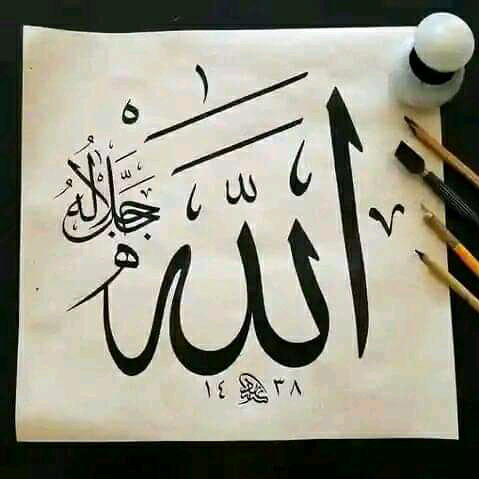 الله
جل جلاله
١٤٣٨